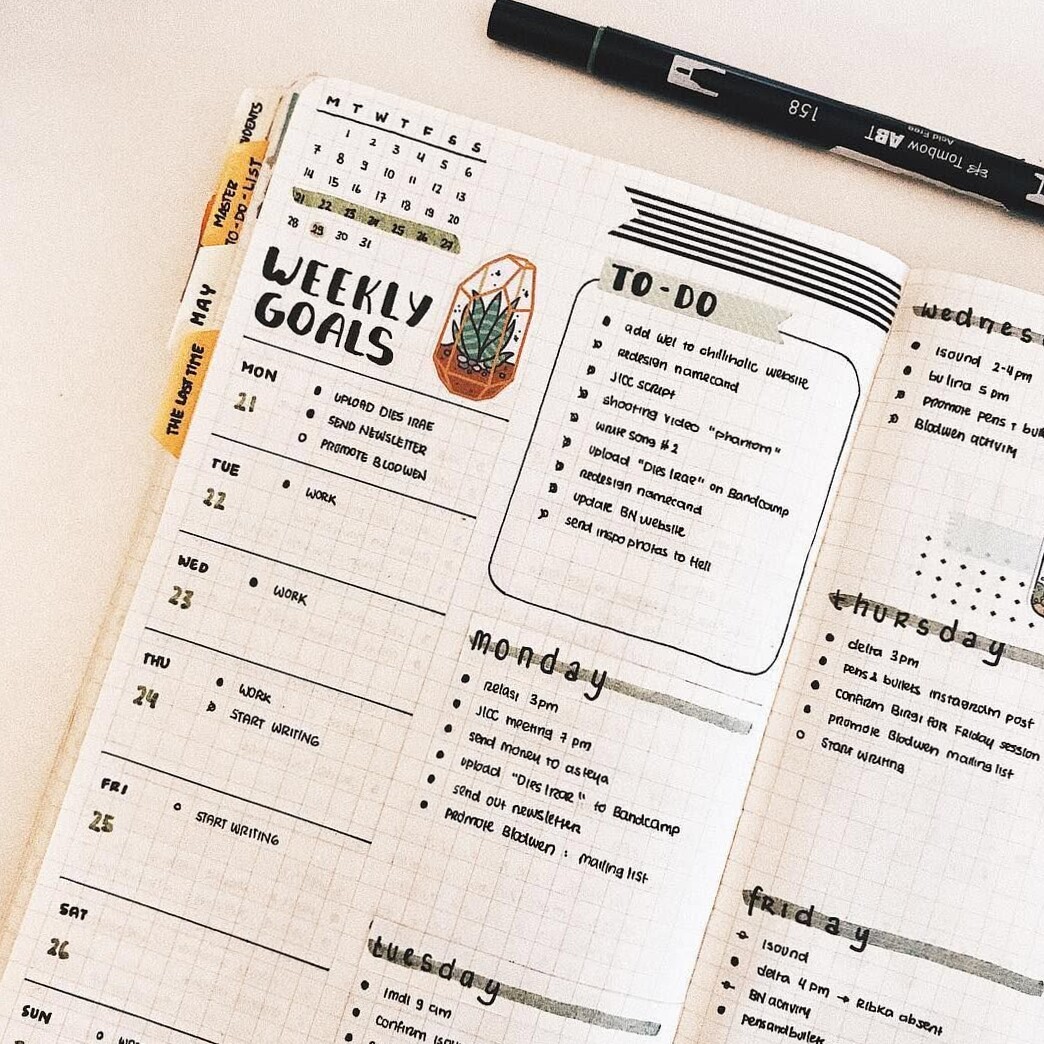 Tombow ABT
Acid Free
158
MASTER
TO-DO-LIST
MAY
THE LAST TIME
M T W T F S S
1 2 3 4 5 6
7 8 9 10 11 12 13
14 15 16 17 18 19 20
21 22 23 24 25 26 27
28 29 30 31
WEEKLY
GOALS
MON
21
UPLOAD DIES IRAE
SEND NEWSLETTER
PROMOTE BLODWEN
TUE
22
WORK
WED
23
WORK
THU
24
WORK
START WRITING
FRI
25
START WRITING
SAT
26
SUN
TO-DO
add WEI to chilliholic website
redesign namecard
JICC SCRIPT
shooting video "phantom"
write song #2
upload "Dies Irae" on Bandcamp
redesign namecard
update BN website
send inspo photos to Hell
monday
relasi 3pm
JICC meeting 7 pm
send money to asteya
upload "Dies Irae" to Bandcamp
send out newsletter
promote Blodwen : mailing list
tuesday
1mdi 9 am
confirm
wednes
1sound 2-4pm
bu lina 5 pm
promote pens +
Blodwen activity
thursday
delta 3pm
pens & bullets instagram post
confirm Birgi for Friday session
promote Blodwen mailing list
START WRITING
friday
1sound
delta 4pm → Ribka absent
BN activity
pensandbullets